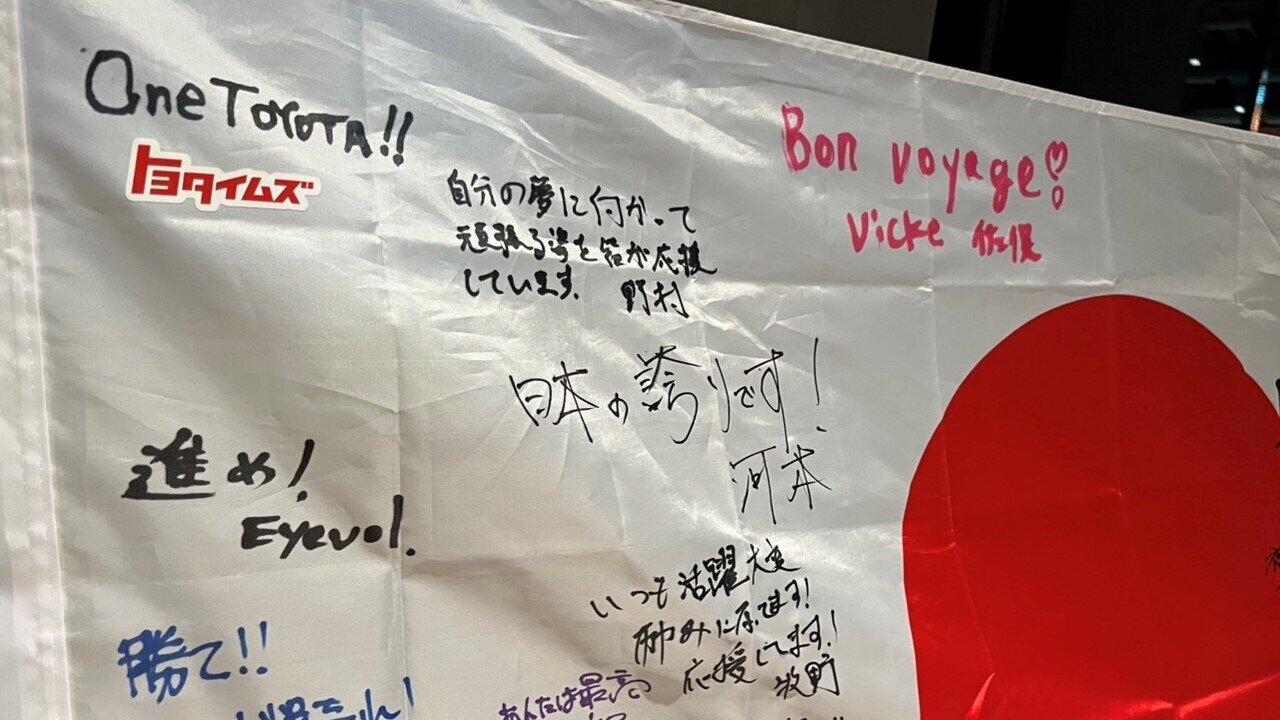 One TOYOTA!!
トヨタイムズ
自分の夢に向かって
頑張る姿を皆が応援
しています. 野村
Bon voyage!
Vicke 佐俣
日本の誇りです!
河本
進め!
Eyevol.
いつも活躍大変
励みに
応援してます!
牧野
勝て!!
あんたは最高